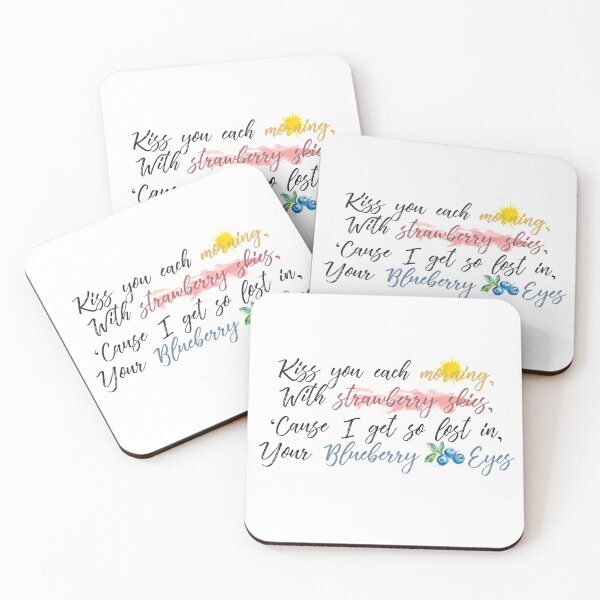 Kiss you each morning,
With strawberry skies
'Cause so lost
Kiss you each morning,
With strawberry skies,
'Cause I get so lost in,
Your Blueberry Eyes
Kiss you each morning,
With strawberry skies,
'Cause I get so lost in,
Your Blueberry
Kiss you each morning,
With strawberry skies,
'Cause I get so lost in,
Your Blueberry Eyes